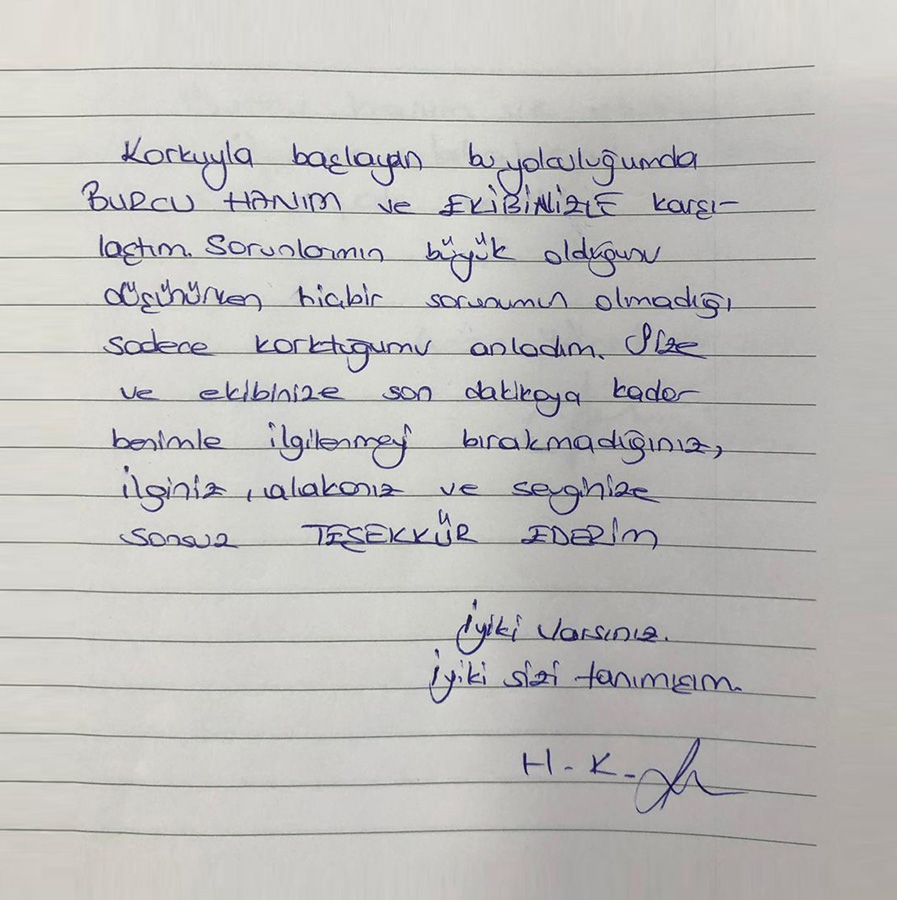 Korkuyla başlayan bu yolculuğumda
BURCU HANIM ve EKİBİNİZLE karşı-
laştım. Sorunlarımın büyük olduğunu
düşünürken hiçbir sorunumun olmadığı
sadece korktuğumu anladım. Size
ve ekibinize son dakikaya kadar
benimle ilgilenmeyi bırakmadığınız,
ilginiz, alakanız ve sevginize
sonsuz TEŞEKKÜR EDERİM
İyiki varsınız.
İyiki sizi tanımışım.
H-K-